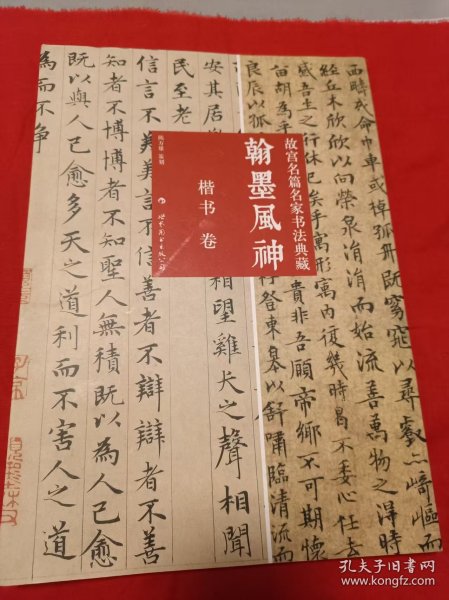 故宫名篇名家书法典藏
翰墨風神
楷书 卷
世界图书出版公司
西疇或命巾車或棹孤舟既窈窕以尋壑亦崎嶇而
經丘木欣欣以向榮泉涓涓而始流善萬物之得時
感吾生之行休已矣乎寓形宇内復幾時曷不委心任去
留胡為乎
貴非吾願帝鄉不可期懷
良辰以孤
行登東皋以舒嘯臨清流而
安其居
相望雞犬之聲相聞
民至老
信言不美美言不信善者不辯辯者不善
知者不博博者不知聖人無積既以為人己愈
既以與人己愈多天之道利而不害人之道
為而不争
孔夫子旧书网